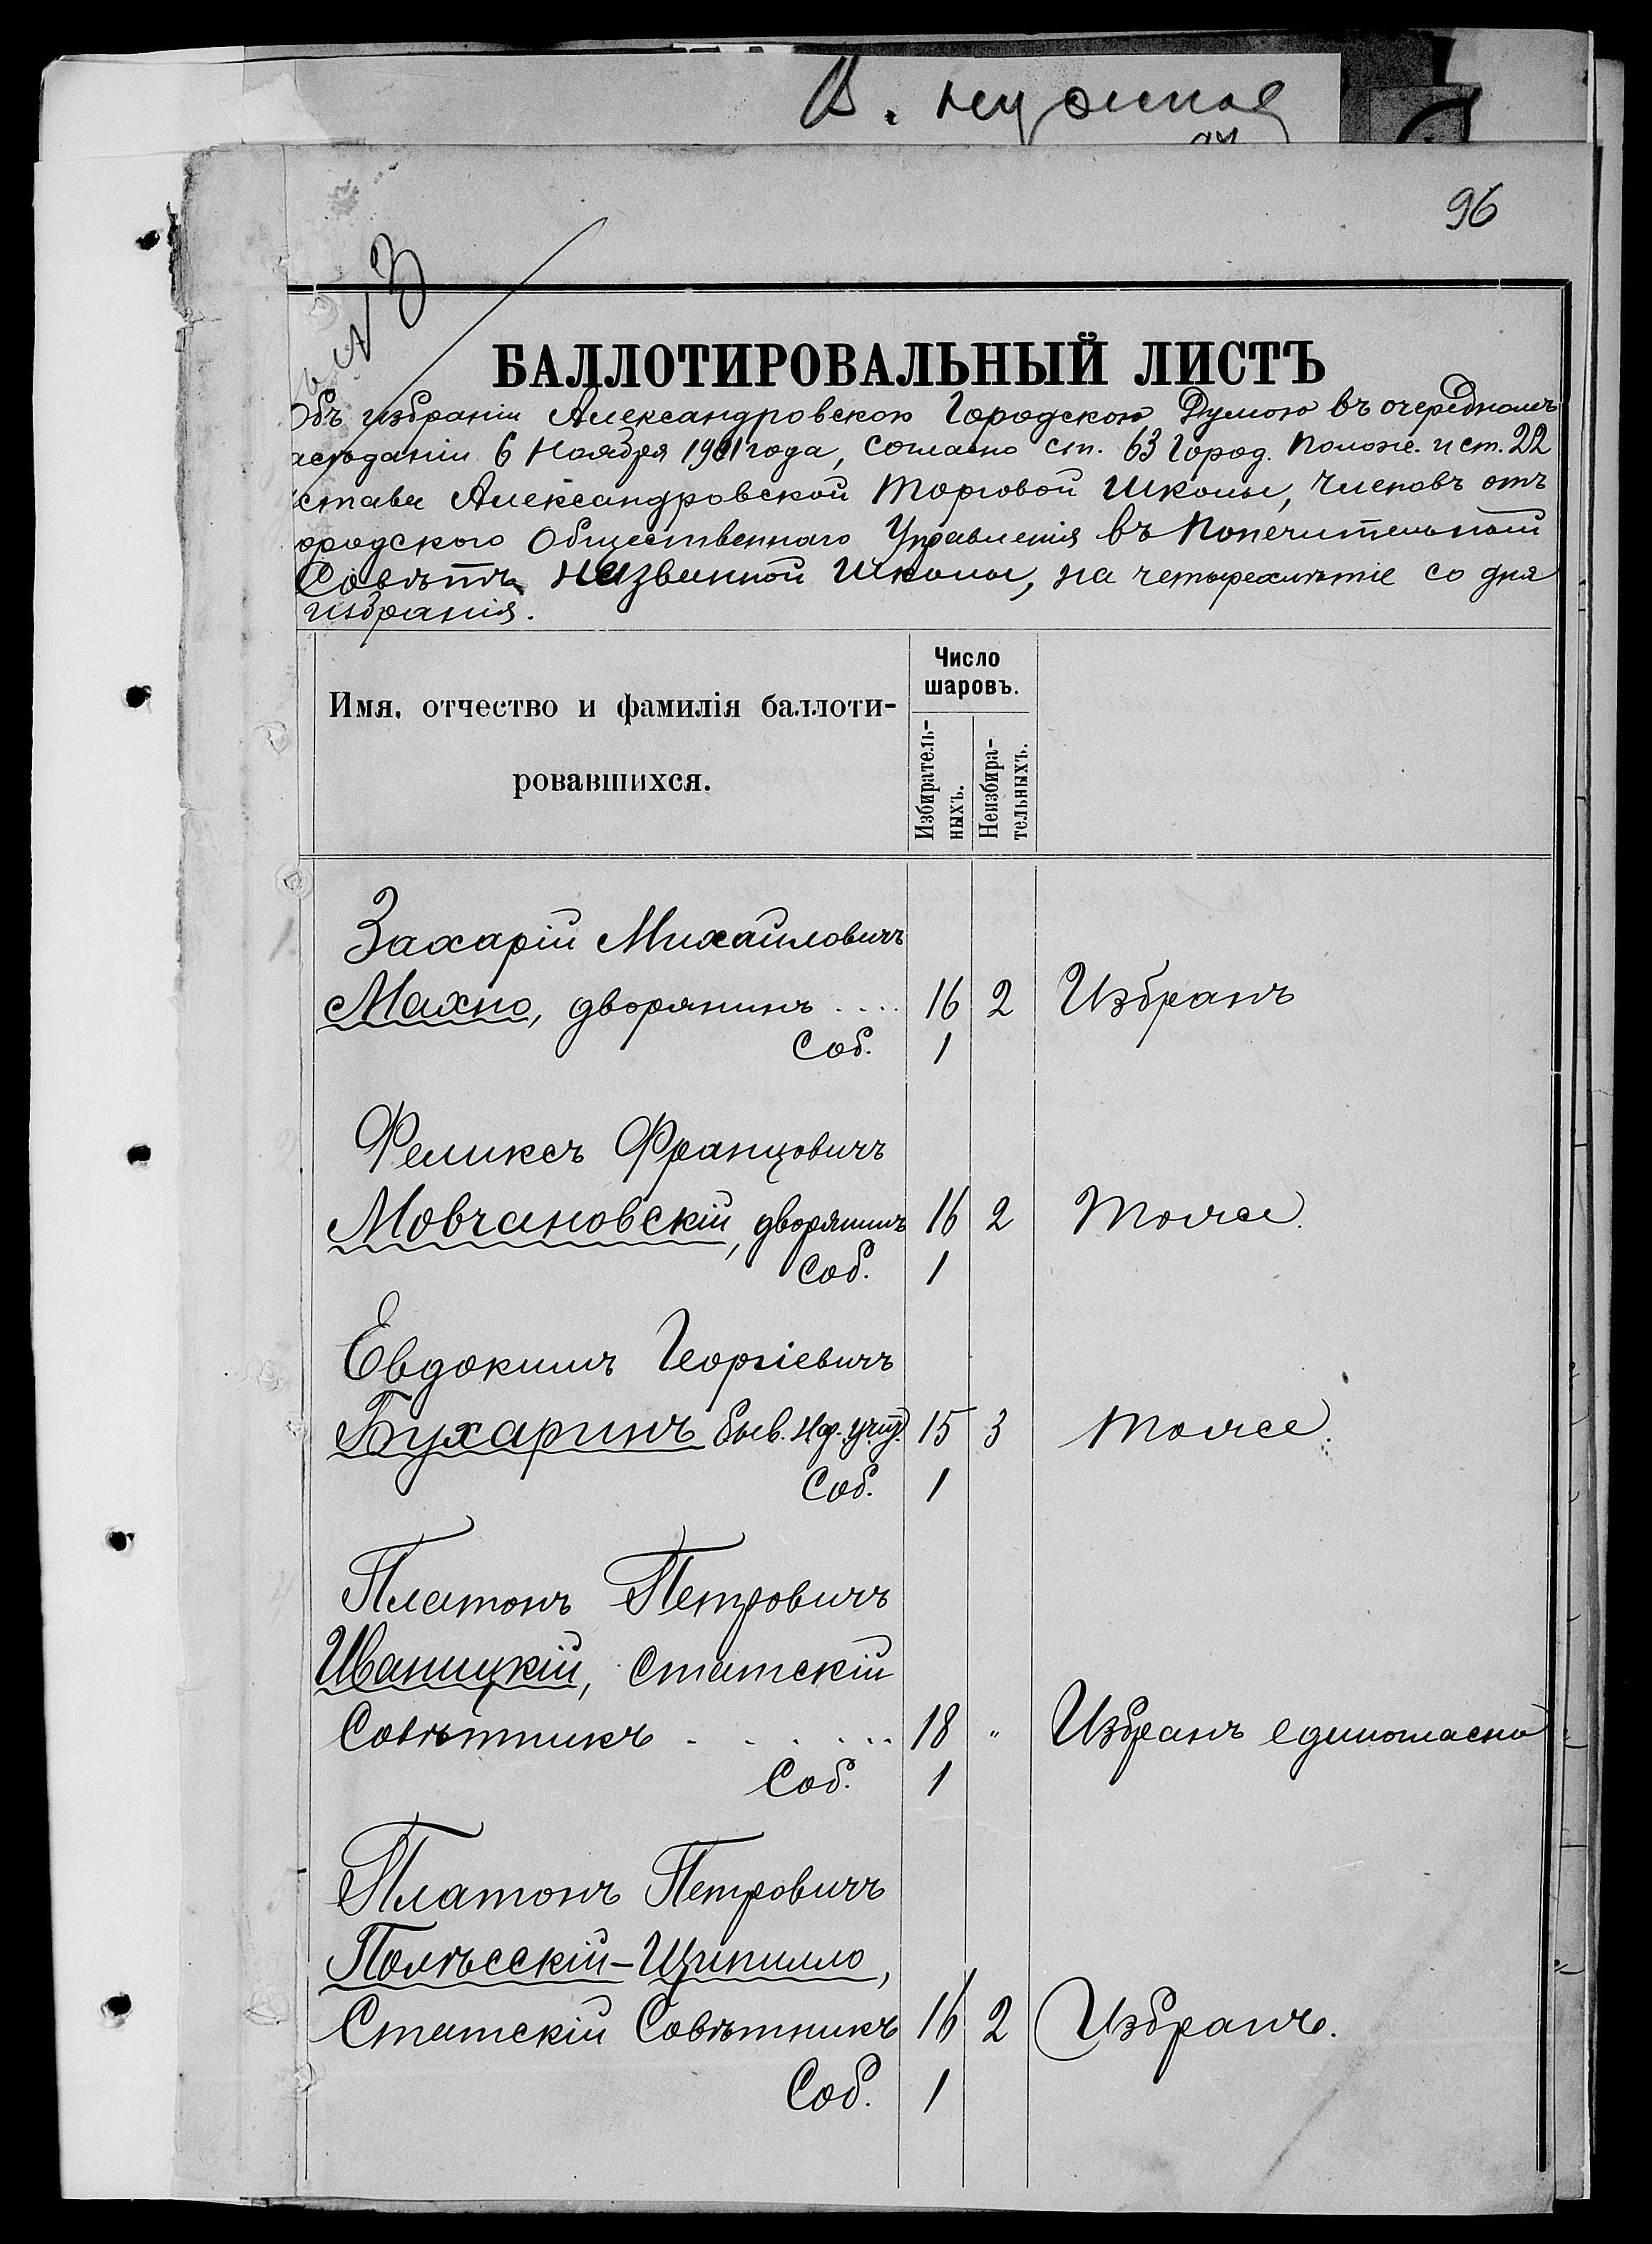 96
№ 3
БАЛЛОТИРОВАЛЬНЫЙ ЛИСТЪ
Объ избраніи Александровскою Городскою Думою въ очередномъ
асѣданіи 6 Ноября 1901 года, согласно ст. 63 Город. Полож. и ст. 22
става Александровской Торговой Школы, Членовъ отъ
ородского Общественнаго Управленія въ Попечительный
Совѣтъ названной Школы, на четырехлѣтіе со дня
избранія.
Имя, отчество и фамилія баллоти-
ровавшихся.
Число
шаровъ.
Избиратель-
ныхъ.
Неизбира-
тельныхъ.
Захарій Михайловичъ
Махно, дворянинъ .... 16 2 Избранъ
Соб. 1
Феликсъ Францовичъ
Мовчановскій, дворянинъ 16 2 Тоже.
Соб. 1
Евдокимъ Георгіевичъ
Бухаринъ быв. 15 3 Тоже.
Соб. 1
Платонъ Петровичъ
Иваницкій, Статскій
Совѣтникъ . . . . . . 18 " Избранъ единогласно
Соб. 1
Платонъ Петровичъ
Полѣсскій-Щипилло,
Статскій Совѣтникъ 16 2 Избранъ.
Соб. 1